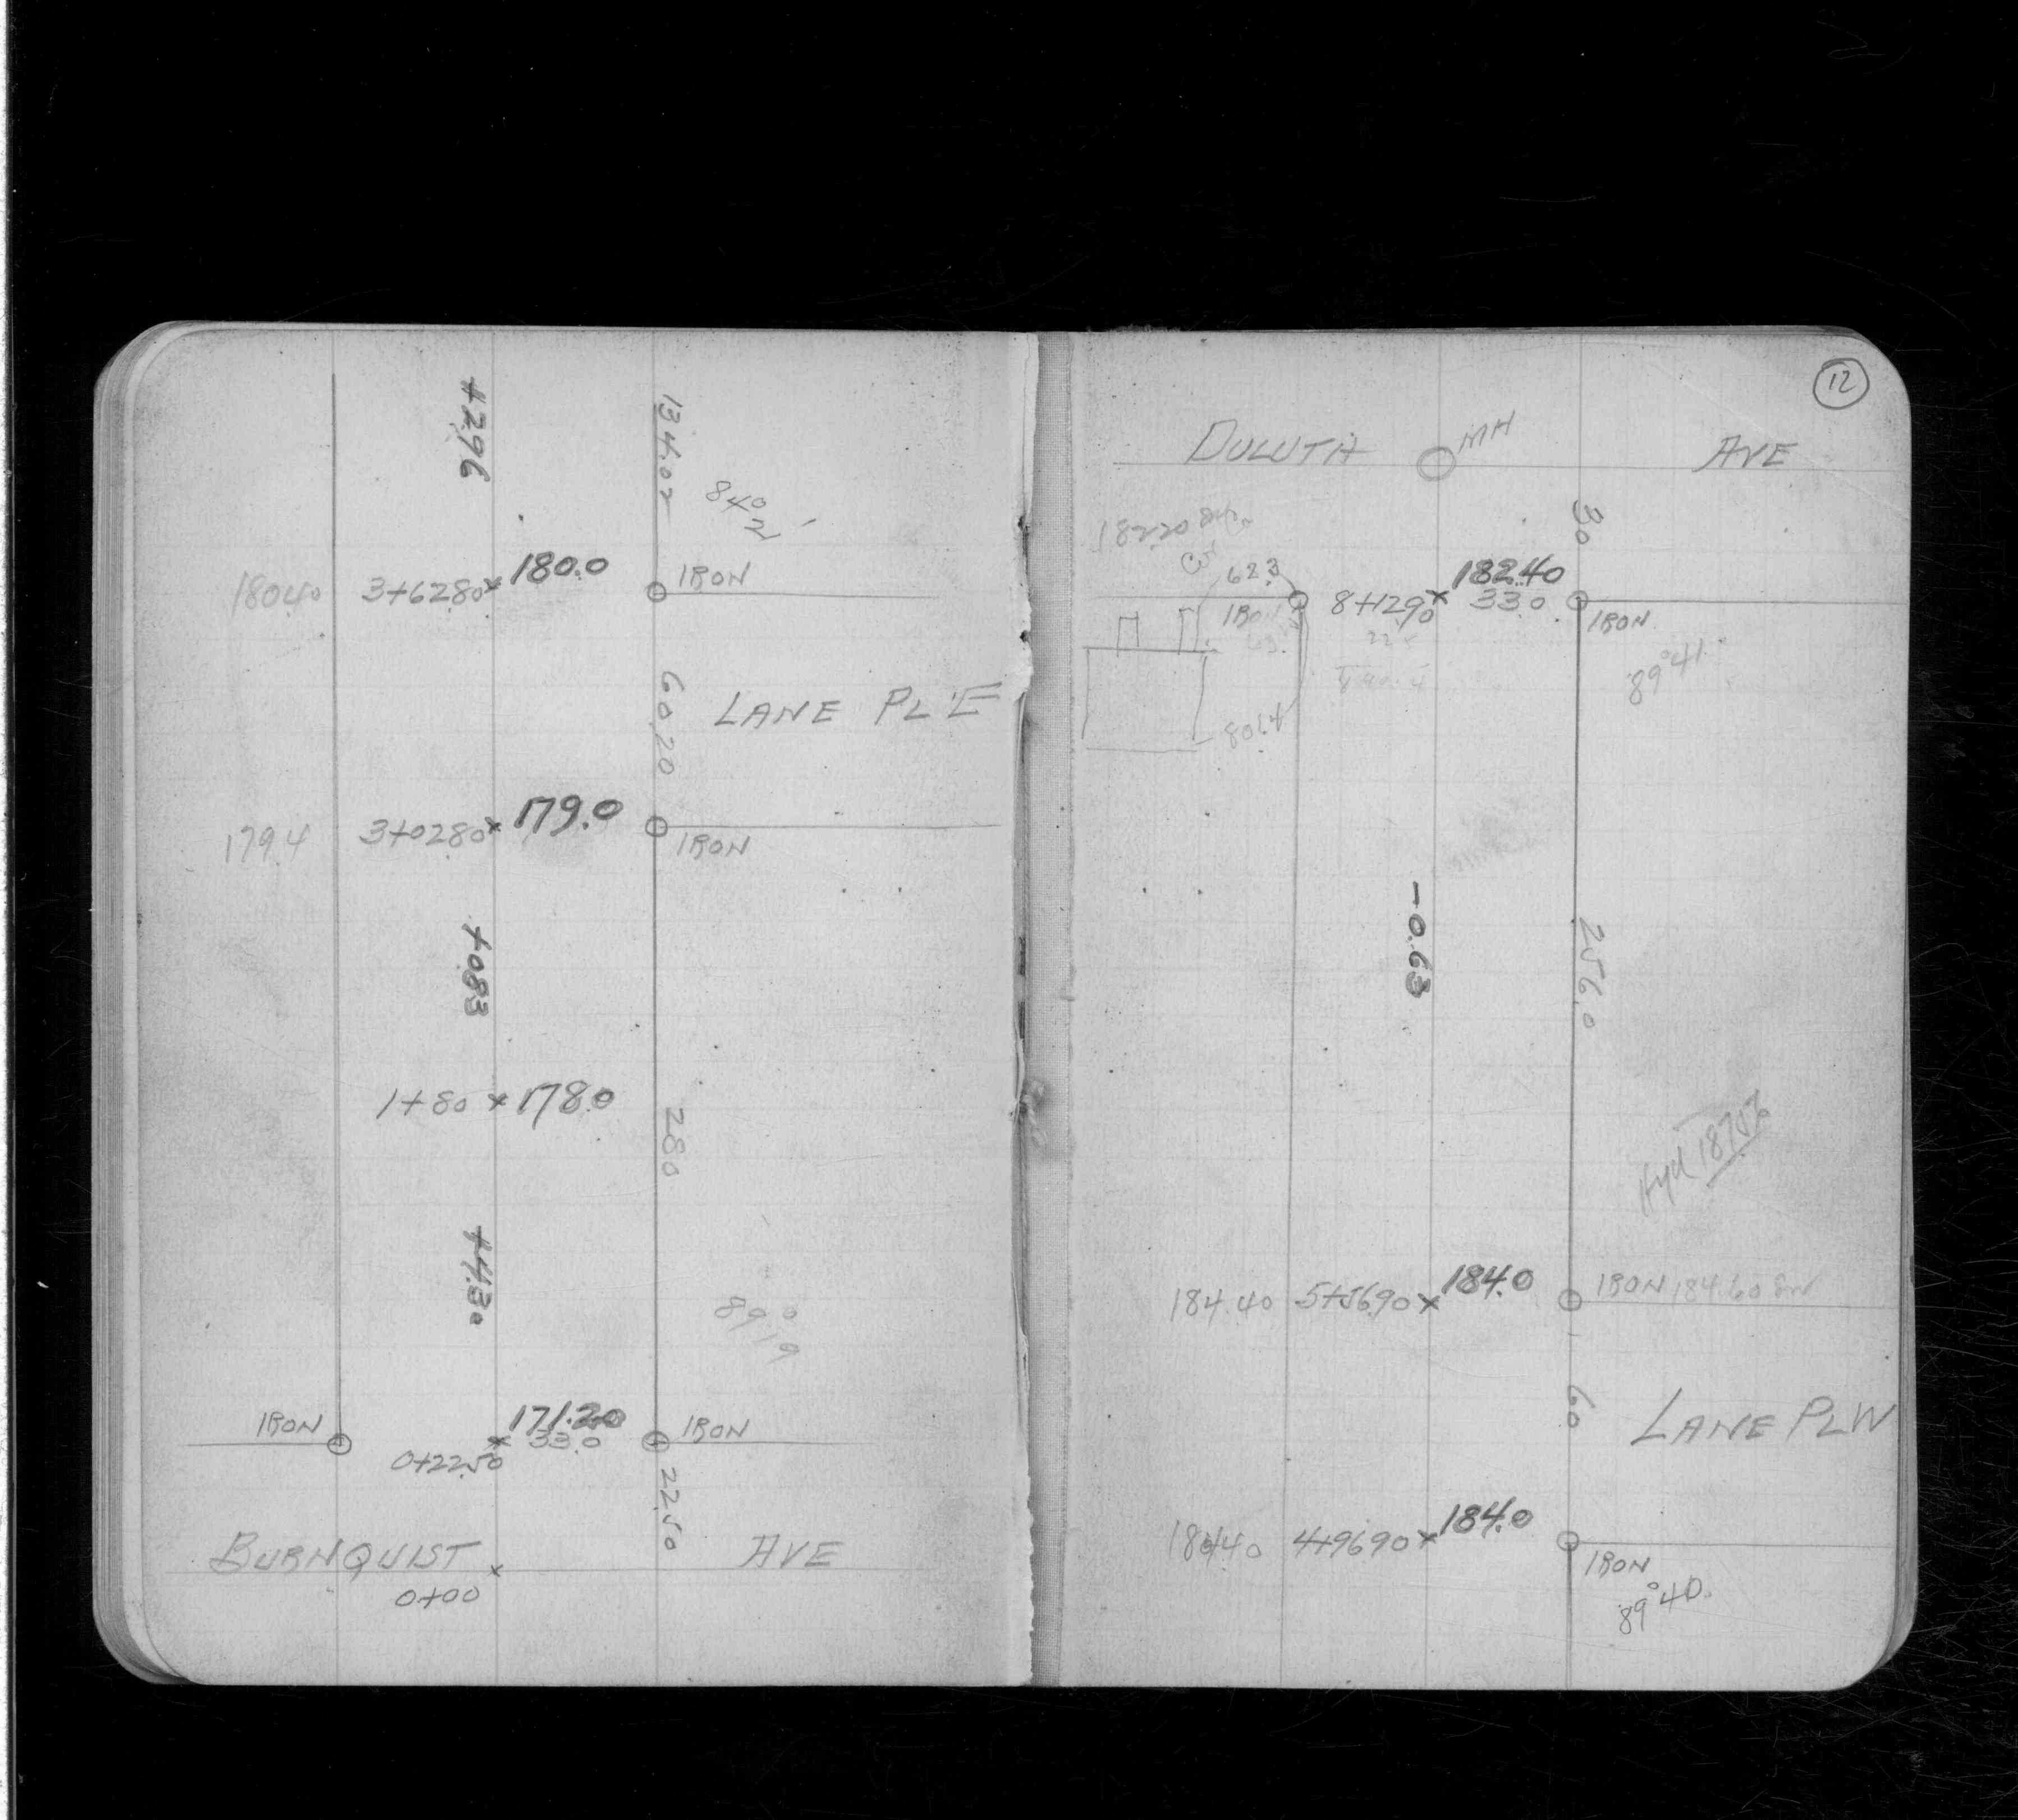 +2.96
134.02
84° 2'
180.40 3+62.80 180.0 IRON
60.20
LANE PL E
179.4 3+02.80 179.0 IRON
+0.83
1+80 178.0
280
+4.30
89° 19
IRON 171.20 IRON
0+22.50 33.0
22.50
BURNQUIST AVE
0+00
12
DULUTH MH AVE
30
182.20
62.3 182.40
IRON 8+12.90 33.0 IRON
89° 41'
80.4
-0.63
256.0
Hyd
184.40 5+56.90 184.0 IRON 184.60
60
LANE PL W
184.40 4+96.90 184.0 IRON
89° 40